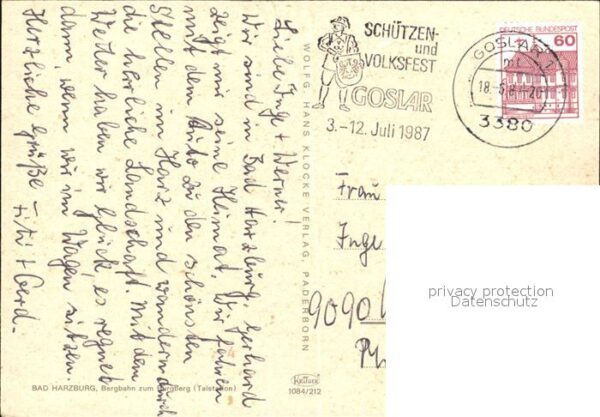 Liebe Inge + Werner!
Wir sind in Bad Harzburg. Gerhard
zeigt mir seine Heimat. Wir fahren
mit dem Auto zu den schönsten
Stellen im Harz und wandern durch
die herrliche Landschaft. Mit dem
Wetter haben wir Glück, es regnet
dann, wenn wir im Wagen sitzen.
Herzliche Grüße –
+ Gerd.
BAD HARZBURG, Bergbahn zum Burgberg (Talstation)
WOLFG. HANS KLOCKE VERLAG, PADERBORN
Krüger
1084/212
SCHÜTZEN-
und
VOLKSFEST
GOSLAR
3.-12. Juli 1987
GOSLAR 1
mt
18.-6.87-20
3380
DEUTSCHE BUNDESPOST
60
Frau
Inge
9090
privacy protection
Datenschutz